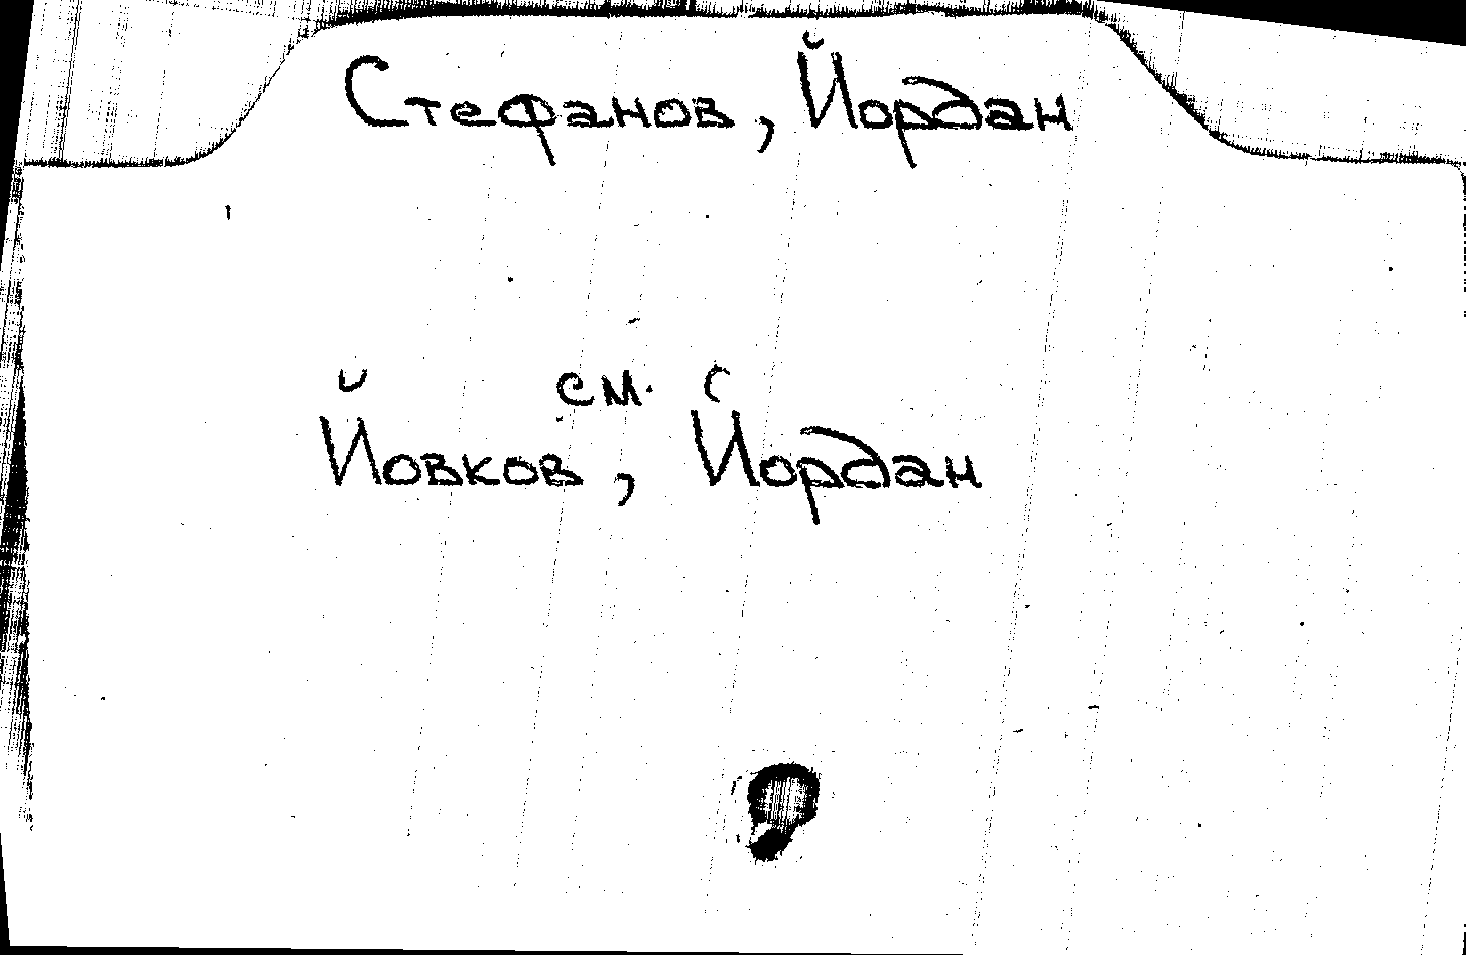 Стефанов, Йордан
см.
Йовков, Йордан